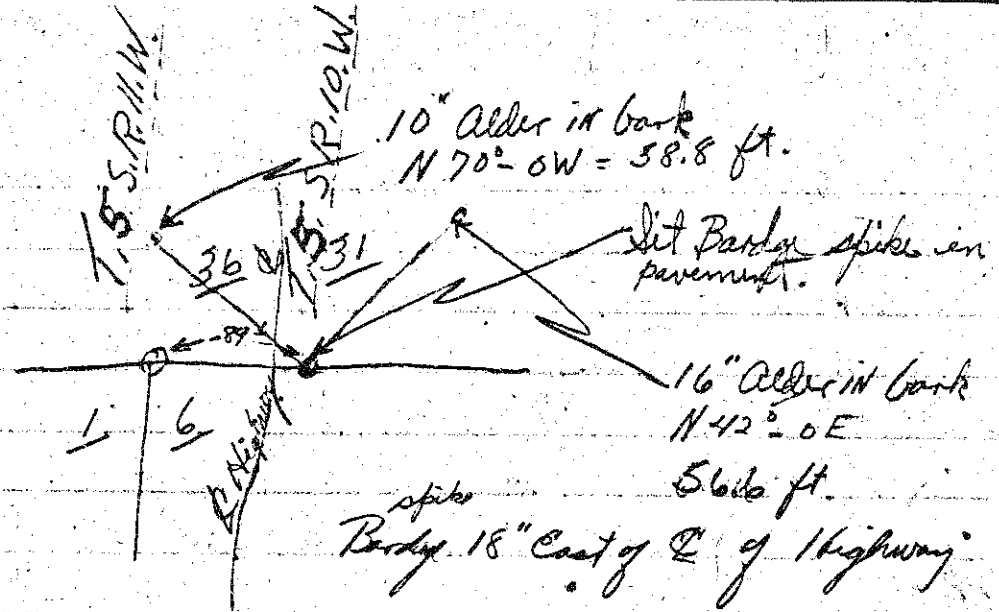 T.5 S.R.11.W.
T.5.S.R.10.W.
10" Alder in bark
N 70°-0W = 38.8 ft.
Set Bardge spike in
pavement.
36
31
89
16" Alder IN bark
N 42°-0 E
56.6 ft.
1
6
℄ Highway
spike
Bardge 18" East of ℄ of Highway